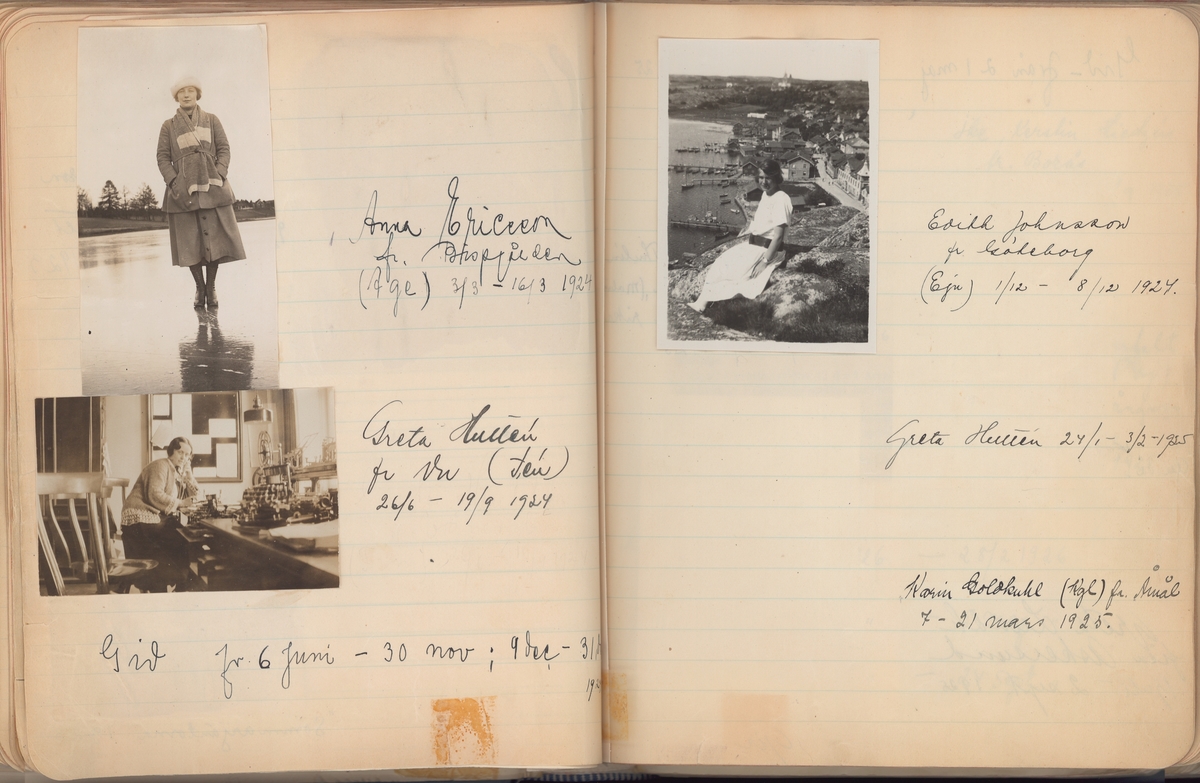 Anna Ericsson
fr.
(Age) 3/3 – 16/3 1924
Greta Hultén
fr Vn (tén)
26/6 – 19/9 1924
Gid fr. 6 Juni – 30 nov ; 9 dec –
Edith Johnsson
fr Göteborg
(Ejn) 1/12 – 8/12 1924.
Greta Hultén 24/1 – 3/2 – 1925
Karin Goldkuhl (Kgl) fr. Åmål
7 – 21 mars 1925.